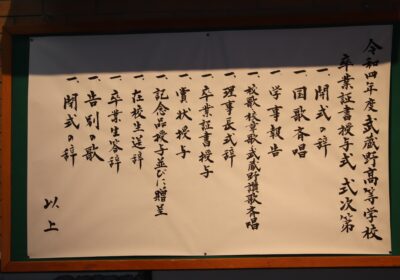 令和四年度 武蔵野高等学校
卒業証書授与式 式次第
一、開式の辞
一、国歌斉唱
一、学事報告
一、校歌校章歌武蔵野讃歌斉唱
一、理事長式辞
一、卒業証書授与
一、賞状授与
一、記念品授与並びに贈呈
一、在校生送辞
一、卒業生答辞
一、告別の歌
一、閉式の辞
以上